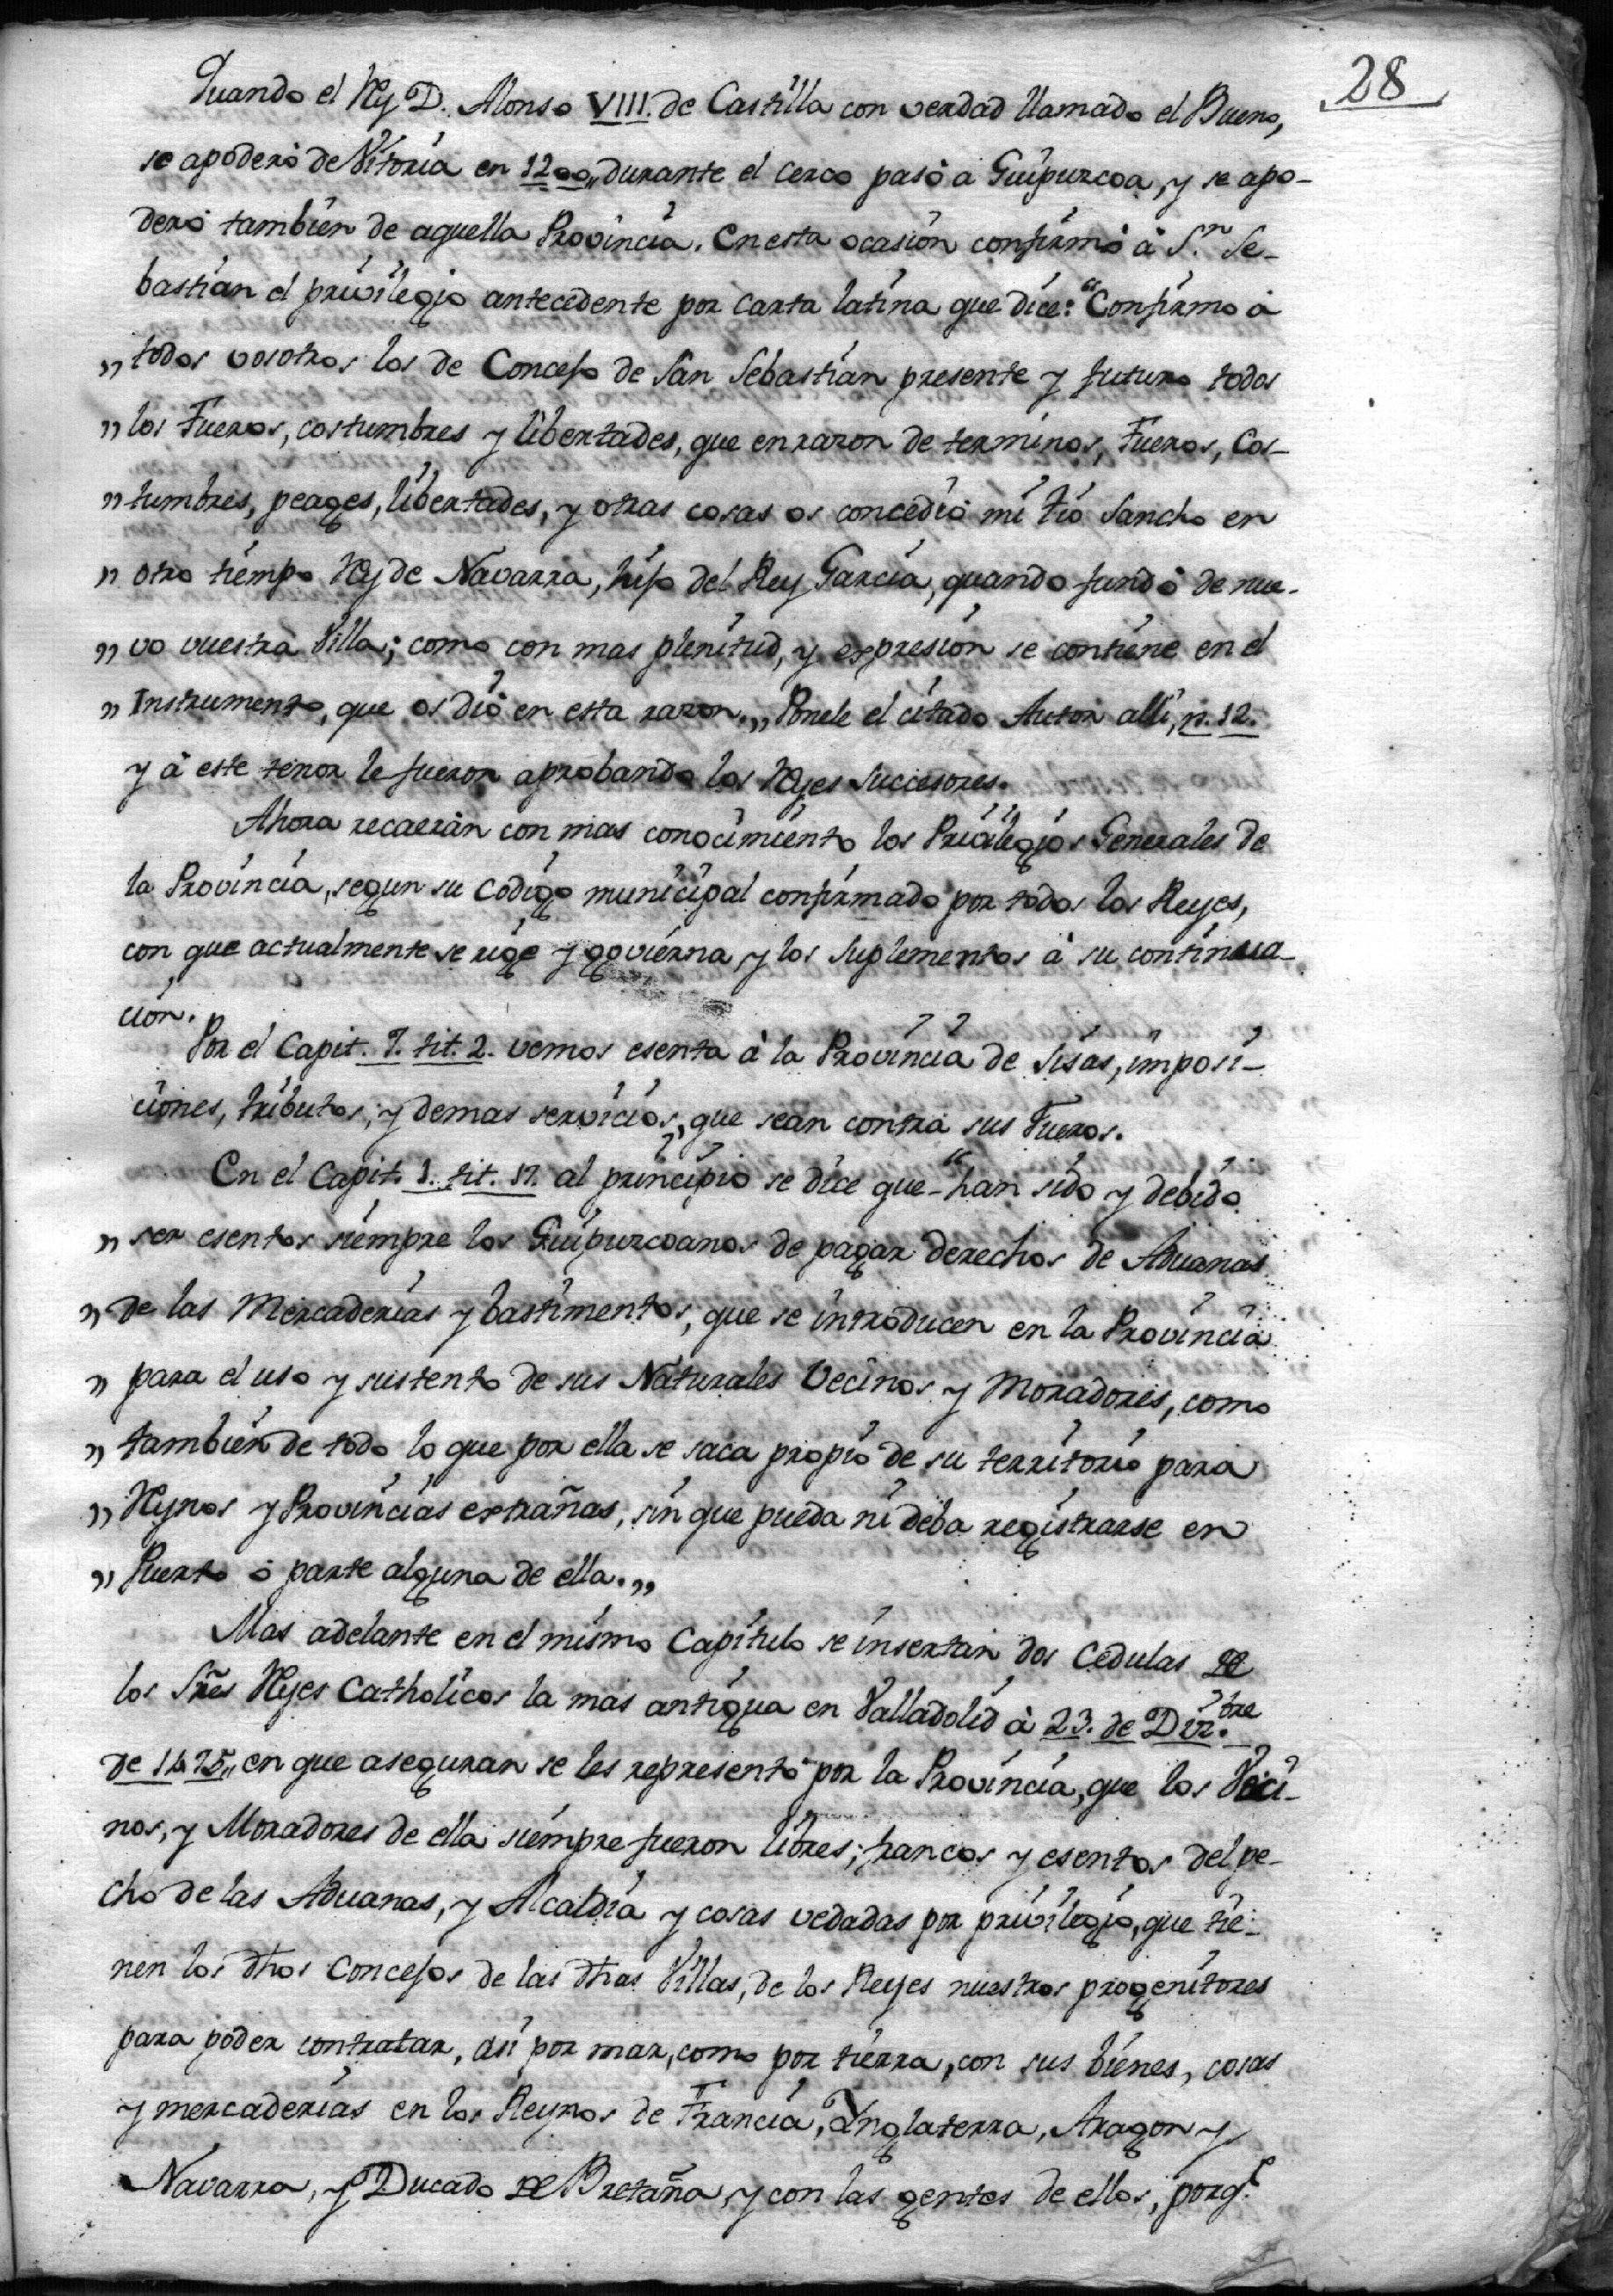 28
Quando el Rey D. Alonso VIII. de Castilla con verdad llamado el Bueno,
se apoderò de Vitoria en 1200,, durante el cerco pasò a Guipuzcoa, y se apo-
derò tambien de aquella Provincia. En esta ocasion confirmò à S.n Se-
bastian el privilegio antecedente por carta latina que dice: "Confirmo à
" todos vosotros los de Concejo de San Sebastian presente y futuro todos
" los Fueros, costumbres y libertades, que en razon de terminos, Fueros, Cos-
" tumbres, peages, libertades, y otras cosas os concediò mi tio Sancho en
" otro tiempo Rey de Navarra, hijo del Rey Garcia, quando fundò de nue-
" vo vuestra Villa; como con mas plenitud, y expresion se contiene en el
" Instrumento, que os diò en esta razon.,, Ponele el citado Autor alli, n. 12.
y à este tenor le fueron aprobando los Reyes Succesores.
Ahora recaeràn con mas conocimiento los Privilegios Generales de
la Provincia, segun su codigo municipal confirmado por todos los Reyes,
con que actualmente se rige y govierna, y los suplementos à su continua-
cion.
Por el Capit. 7. tit. 2. vemos esenta à la Provincia de sisas, imposi-
ciones, tributos, y demas servicios, que sean contra sus Fueros.
En el Capit. 1. tit. 17. al principio se dice que "han sido y debido
" ser esentos siempre los Guipuzcoanos de pagar derechos de Aduanas
" de las Mercaderias y bastimentos, que se introducen en la Provincia
" para el uso y sustento de sus Naturales Vecinos y Moradores, como
" tambien de todo lo que por ella se saca propio de su territorio para
" Reynos y Provincias extrañas, sin que pueda ni deba registrarse en
" Puerto ò parte alguna de ella.,,
Mas adelante en el mismo Capitulo se insertan dos Cedulas de
los Sres Reyes Catholicos la mas antigua en Valladolid à 23. de Diz.bre
de 1475,, en que aseguran se les representò por la Provincia, que los Veci-
nos, y Moradores de ella siempre fueron libres, francos y esentos del pe-
cho de las Aduanas, y Alcaldia y cosas vedadas por privilegio, que tie-
nen los dhos Concejos de las dhas Villas, de los Reyes nuestros progenitores
para poder contratar, asi por mar, como por tierra, con sus bienes, cosas
y mercaderias en los Reynos de Francia, Inglaterra, Aragon y
Navarra, y Ducado de Bretaña, y con las gentes de ellos, porq.e